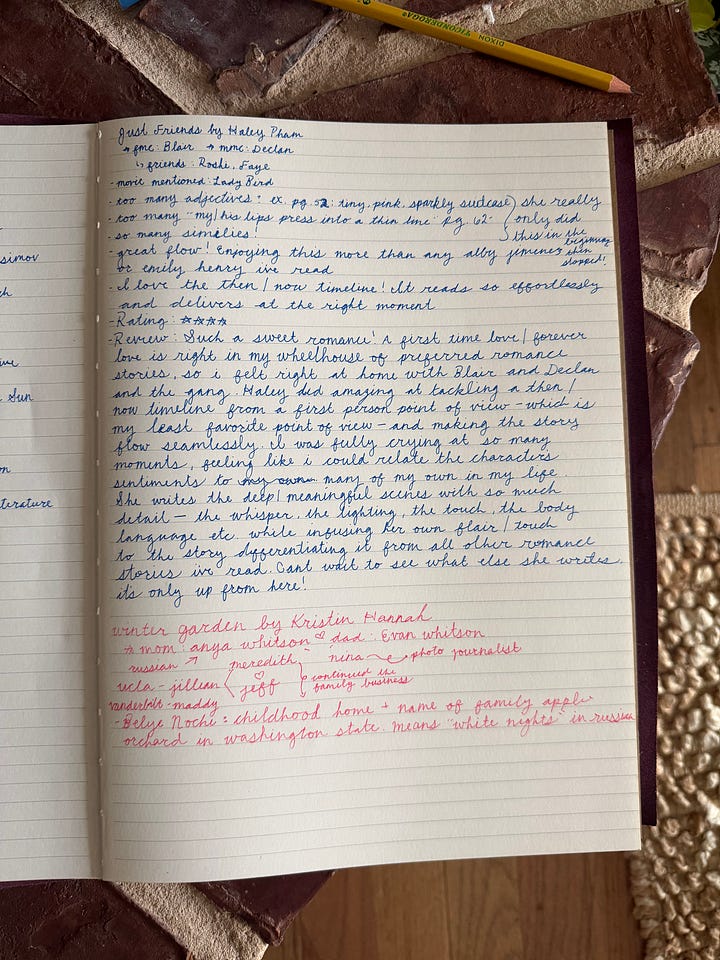 DIXON TICONDEROGA
Just Friends by Haley Pham
→ fmc: Blair → mmc: Declan
↳ friends: Roshi, Faye
- movie mentioned: Lady Bird
- too many adjectives: ex. pg. 52: tiny, pink, sparkly suitcase
- too many "my/his lips press into a thin line" pg. 62
she really
only did
this in the
beginning
then
stopped!
- so many similies!
- great flow! Enjoying this more than any abby jimenez
or emily henry ive read
- I love the then/now timeline! It reads so effortlessly
and delivers at the right moment
- Rating: ☆☆☆☆
- Review: Such a sweet romance! A first time love/forever
love is right in my wheelhouse of preferred romance
stories, so i felt right at home with Blair and Declan
and the gang. Haley did amazing at tackling a then/
now timeline from a first person point of view - which is
my least favorite point of view - and making the story
flow seamlessly. I was fully crying at so many
moments, feeling like i could relate the characters
sentiments to my own many of my own in my life.
She writes the deep/meaningful scenes with so much
detail - the whisper, the lighting, the touch, the body
language etc. while infusing her own flair/touch
to the story differentiating it from all other romance
stories ive read. Cant wait to see what else she writes.
it's only up from here!
winter garden by Kristin Hannah
☆ mom: anya whitson ♡ dad: Evan whitson
russian ↗ meredith nina → photo journalist
ucla - jillian ♡ jeff continued the
family business
vanderbilt - maddy
- Belye Nochi = childhood home + name of family apple
orchard in washington state. means "white nights" in russian
simov
ch
Sun
on
terature